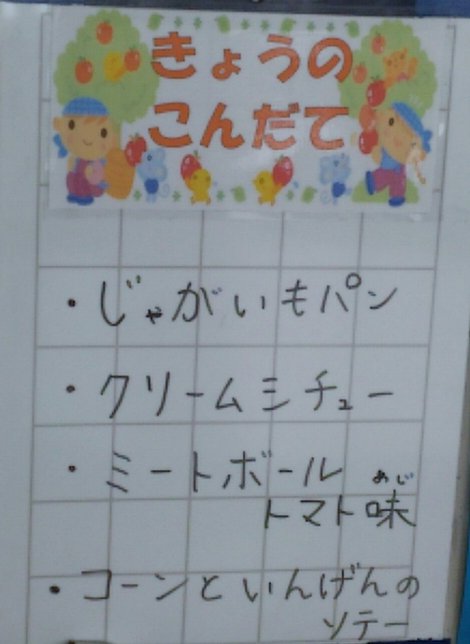 きょうの
こんだて
・じゃがいもパン
・クリームシチュー
・ミートボール
トマト味
あじ
・コーンといんげんの
ソテー